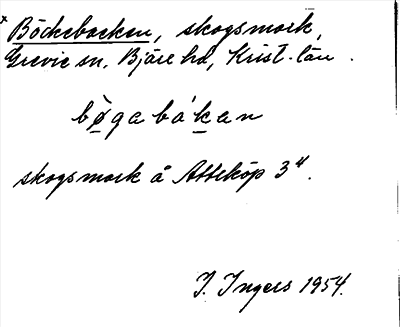 x Böckebacken, skogsmark,
Grevie sn. Bjäre hd, Krist. län.
bøgabákan
skogsmark å Atteköp 3⁴.
I. Ingers 1954.